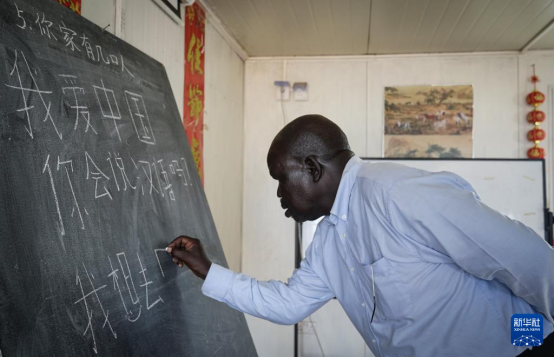 5.你家有几口人
我爱中国
你会说汉语吗
我想去
新华社
XINHUA NEWS